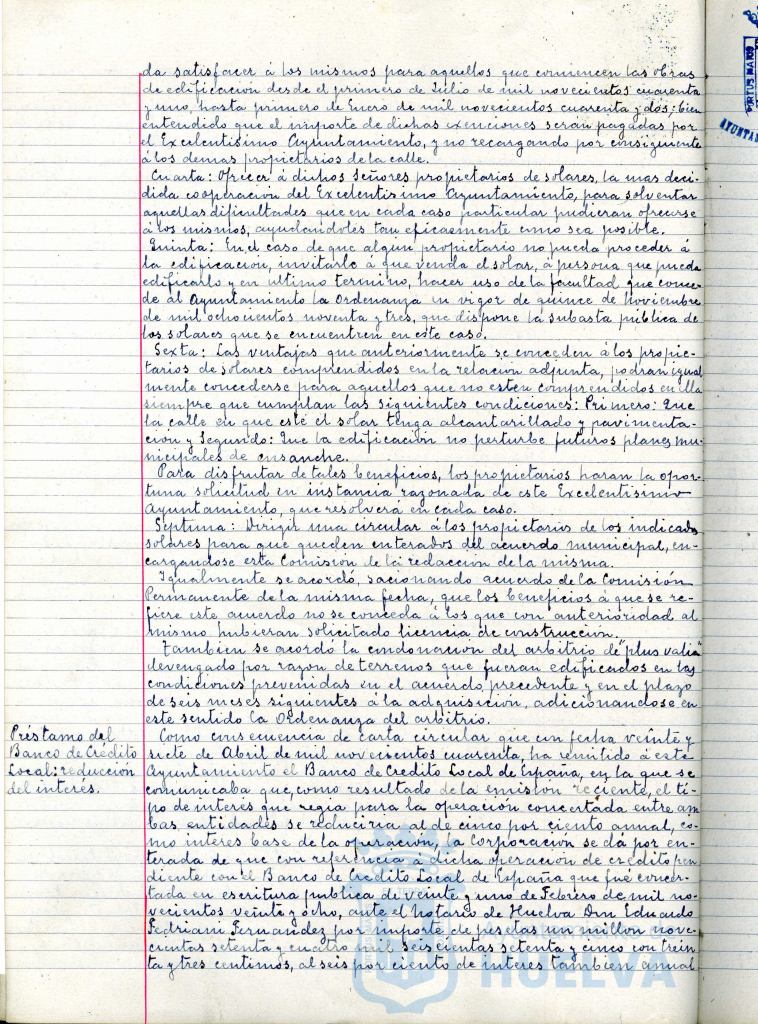 da satisfacer á los mismos para aquellos que comiencen las obras
de edificación desde el primero de Julio de mil novecientos cuarenta
y uno, hasta primero de Enero de mil novecientos cuarenta y dos; bien
entendido que el importe de dichas exenciones serán pagadas por
el Excelentísimo Ayuntamiento, y no recargando por consiguiente
á los demas propietarios de la calle.
Cuarta: Ofrecer á dichos Señores propietarios de solares, la mas deci-
dida cooperación del Excelentisimo Ayuntamiento, para solventar
aquellas dificultades que en cada caso particular pudieran ofrecerse
á los mismos, ayudandoles tan eficaemente como sea posible.
Quinta: En el caso de que algun propietario no pueda proceder á
la edificación, invitarle á que venda el solar, á persona que pueda
edificarlo y en ultimo termino, hacer uso de la facultad que conce-
de al Ayuntamiento la Ordenanza en vigor de quince de Noviembre
de mil ochocientos noventa y tres, que dispone la subasta pública de
los solares que se encuentren en este caso.
Sexta: Las ventajas que anteriormente se conceden á los propie-
tarios de solares comprendidos en la relación adjunta, podran igual
mente concederse para aquellos que no esten comprendidos en ella
siempre que cumplan las siguientes condiciones: Primero: Que
la calle en que esté el solar tenga alcantarillado y pavimenta-
ción y Segundo: Que la edificación no perturbe futuros planes mu-
nicipales de ensanche.
Para disfrutar de tales beneficios, los propietarios haran la opor-
tuna solicitud en instancia razonada de este Excelentisimo
Ayuntamiento, que resolverá en cada caso.
Septima: Dirigir una circular á los propietarios de los indicados
solares para que queden enterados del acuerdo municipal, en-
cargandose esta Comisión de la redacción de la misma.
Igualmente se acordó, sacionando acuerdo de la Comisión
Permanente de la misma fecha, que los beneficios á que se re-
fiere este acuerdo no se conceda á los que con anterioridad al
mismo hubieran solicitado licencia de construcción.
Tambien se acordó la condonacion del arbitrio de "plus valia"
devengado por razon de terrenos que fueran edificados en las
condiciones prevenidas en el acuerdo precedente y en el plazo
de seis meses siguientes á la adquisición, adicionandose en
este sentido la Ordenanza del arbitrio.
Préstamo del
Banco de Crédito
Local: reducción
del interes.
Como consecuencia de carta circular que con fecha veinte y
siete de Abril de mil novecientos cuarenta, ha remitido á este
Ayuntamiento el Banco de Credito Local de España, en la que se
comunicaba que, como resultado de la emisión reciente, el ti-
po de interés que regia para la operación concertada entre am
bas entidades se reduciria al de cinco por ciento annal, co-
mo interes base de la operación, la Corporación se da por en-
terada de que con referencia á dicha operación de credito pen
diente con el Banco de Credito Local de España que fué concer-
tada en escritura publica de veinte y uno de Febrero de mil no-
vecientos veinte y ocho, ante el Notario de Huelva Don Eduardo
Fedriani Fernandez por importe de pesetas un millon nove-
cientas setenta y cuatro mil seiscientas setenta y cinco con trein
ta y tres centimos, al seis por ciento de interes tambien annal
HUELVA